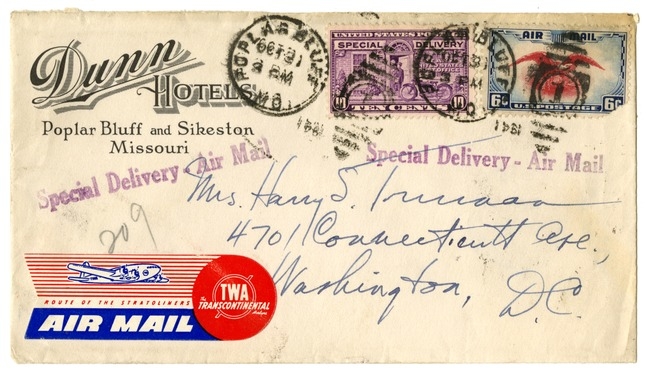 Dunn
HOTELS
Poplar Bluff and Sikeston
Missouri
POPLAR BLUFF
OCT 31
8 PM
MO.
1941
UNITED STATES POSTAGE
SPECIAL DELIVERY
10 TEN CENTS 10
POPLAR BLUFF
MO.
1941
AIR MAIL
6¢ U.S. POSTAGE 6¢
Special Delivery - Air Mail
Special Delivery - Air Mail
209
Mrs. Harry S. Truman
4701 Connecticutt Ave.,
Washington, D.C.
ROUTE OF THE STRATOLINERS
AIR MAIL
The
TWA
TRANSCONTINENTAL
Airline